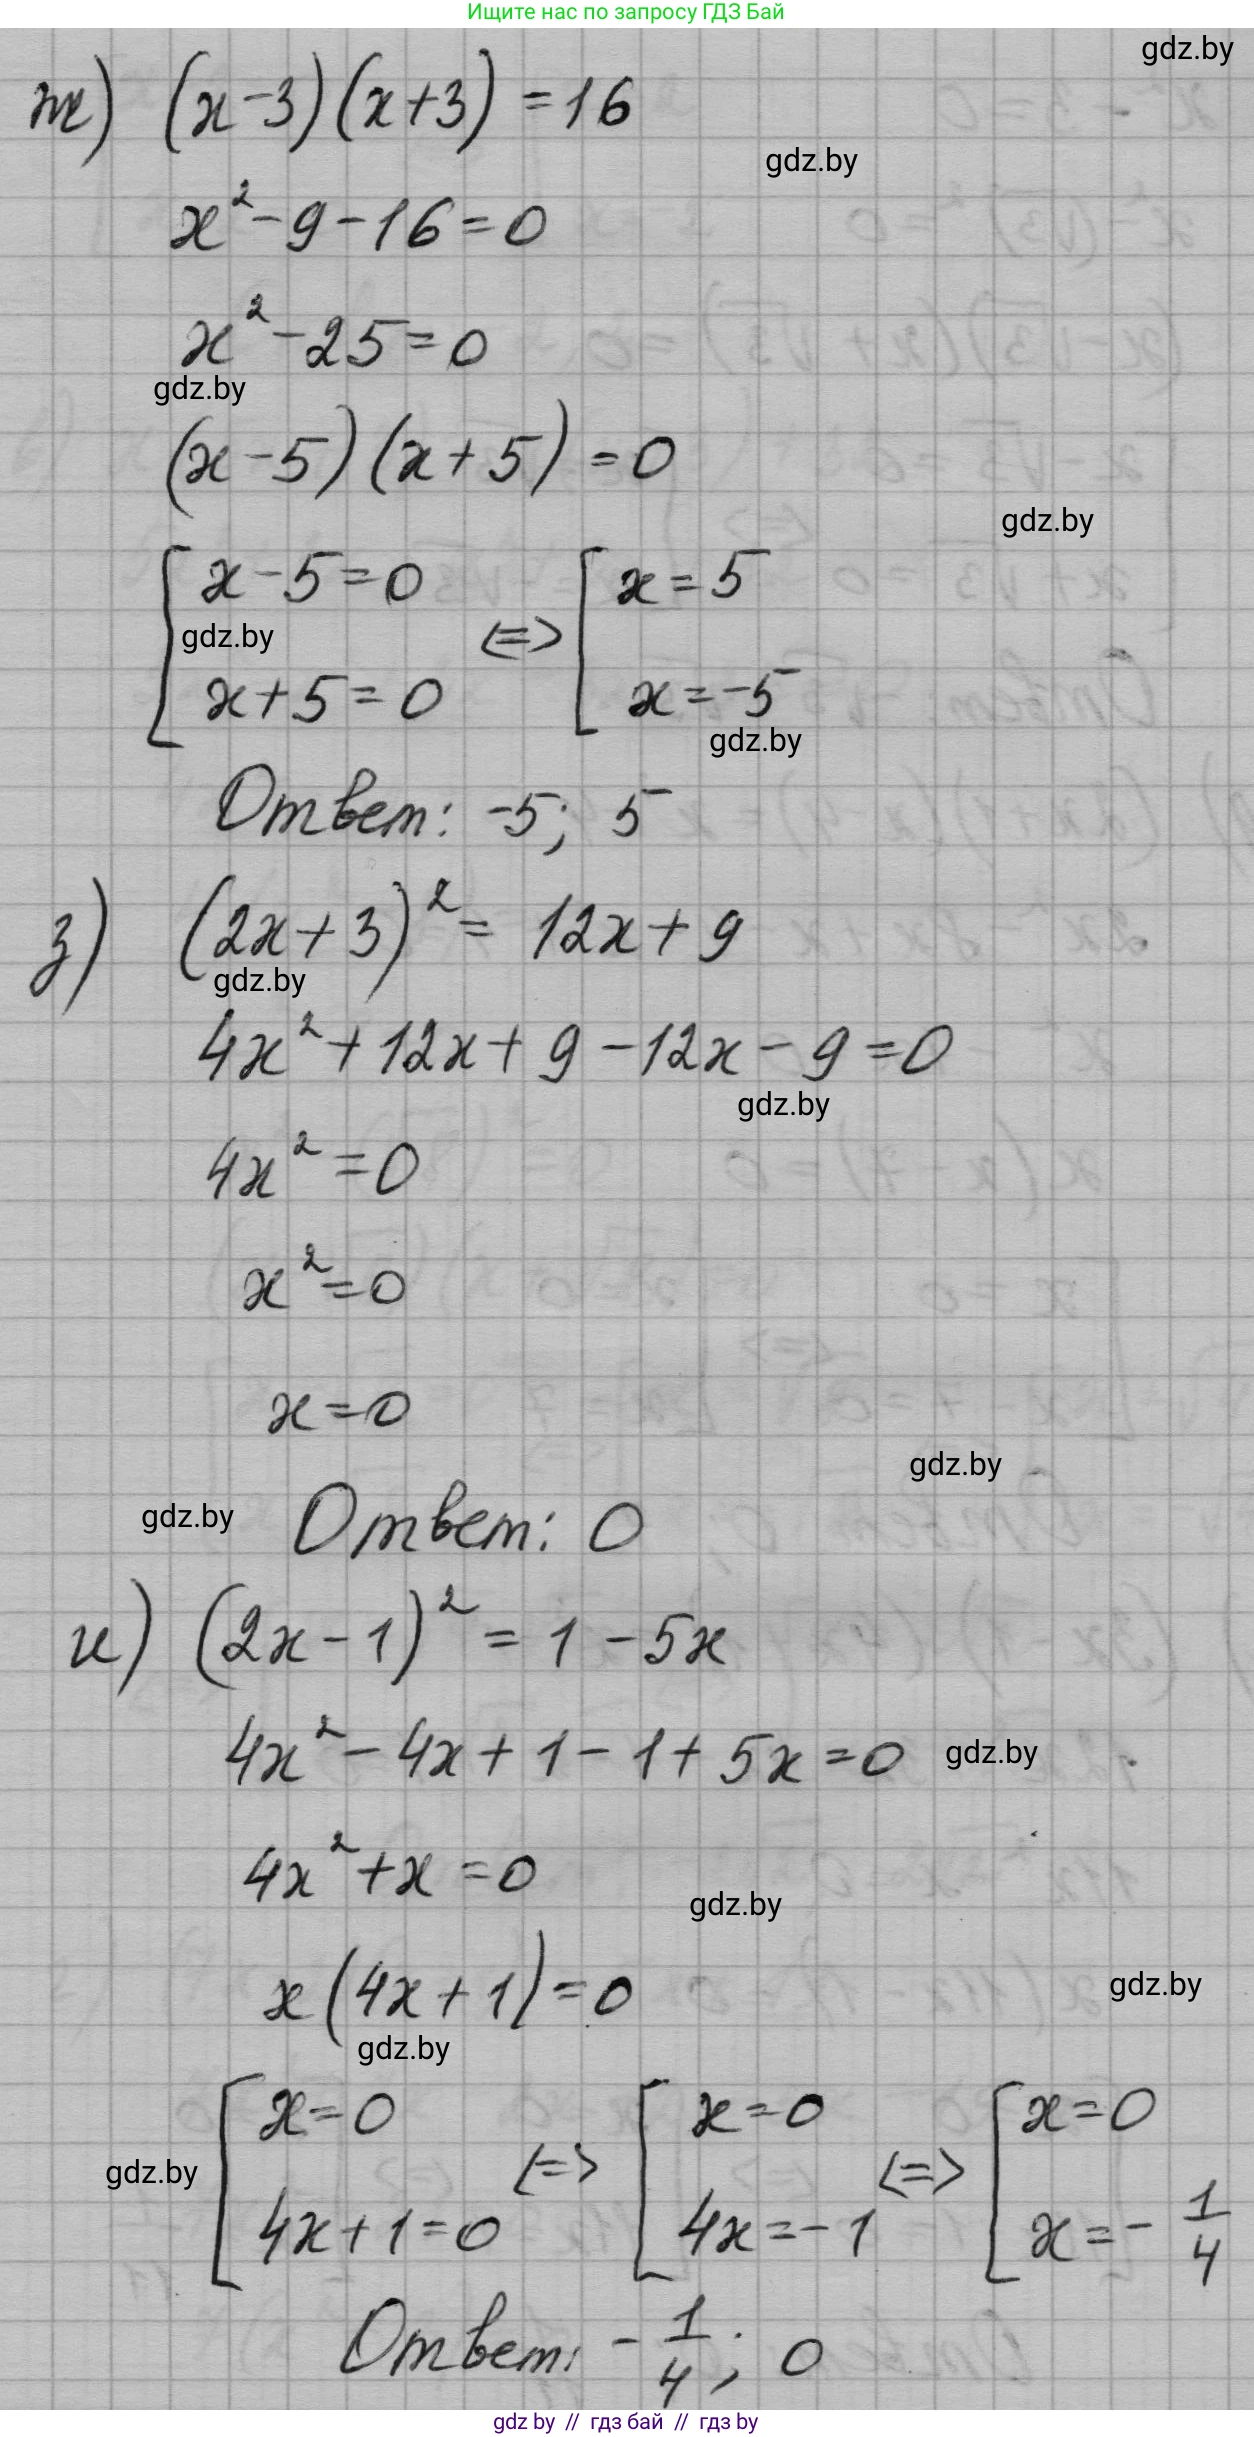 Ищите нас по запросу ГДЗ Бай
gdz.by
ж) (x-3)(x+3) = 16
gdz.by
x² - 9 - 16 = 0
x² - 25 = 0
gdz.by
(x-5)(x+5) = 0
gdz.by
[ x-5=0 <=> [ x=5
gdz.by
x+5=0 x=-5
gdz.by
Ответ: -5; 5
з) (2x+3)² = 12x+9
gdz.by
4x² + 12x + 9 - 12x - 9 = 0
gdz.by
4x² = 0
x² = 0
x = 0
gdz.by
gdz.by
Ответ: 0
и) (2x-1)² = 1 - 5x
4x² - 4x + 1 - 1 + 5x = 0 gdz.by
4x² + x = 0
gdz.by
x(4x+1) = 0
gdz.by
gdz.by
[ x=0 <=> [ x=0 <=> [ x=0
gdz.by
4x+1=0 4x=-1 x=-1/4
Ответ: -1/4; 0
gdz by // гдз бай // гдз by